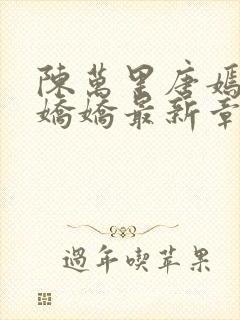 陳萬里唐嫣
嬌嬌最新章
過年喫苹果